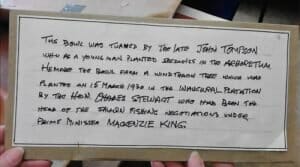 THIS BOWL WAS TURNED BY THE LATE JOHN TOMPSON
WHO AS A YOUNG MAN PLANTED SEEDLINGS IN THE ARBORETUM
HE MADE THE BOWL FROM A WINDTHROWN TREE WHICH WAS
PLANTED ON 15 MARCH 1930 IN THE INAUGURAL PLANTATION
BY THE HON. CHARLES STEWART WHO HAD BEEN THE
HEAD OF THE SALMON FISHING NEGOTIATIONS UNDER
PRIME MINISTER MACKENZIE KING